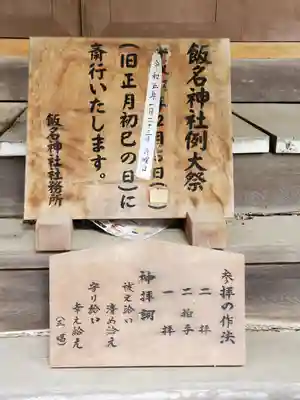 飯名神社例大祭
2月
日
(旧正月初巳の日)に
斎行いたします。
飯名神社社務所
参拝の作法
二拝
二拍手
一拝
神拝詞
祓え給い
清め給え
守り給い
幸え給え
(三唱)